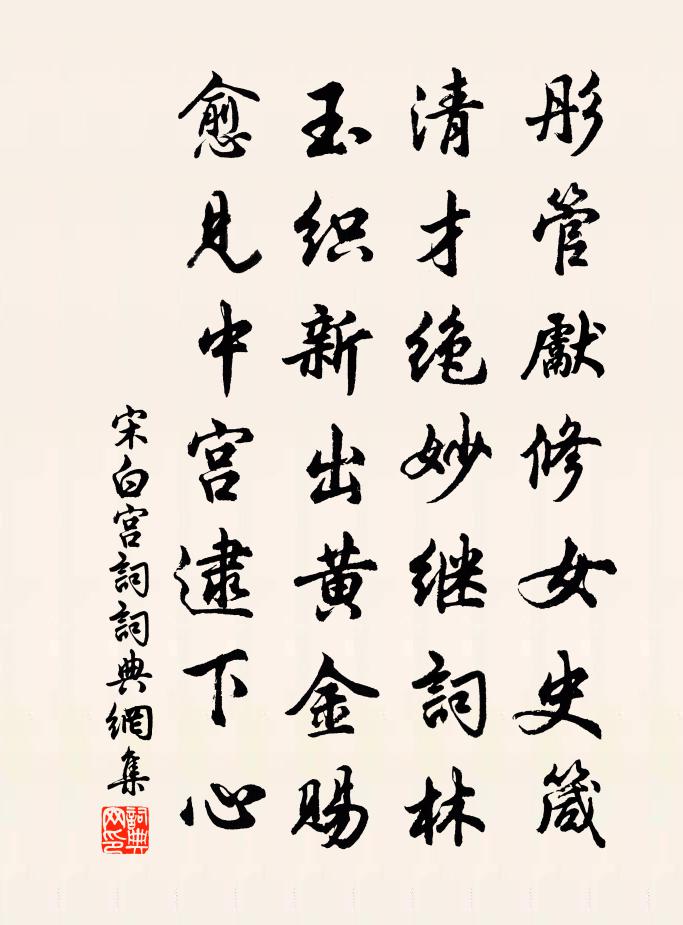 彤管獻修女史箴
清才绝妙继詞林
玉织新出黄金赐
愈见中宫逮下心
宋白宫詞詞典網集
詞典网印